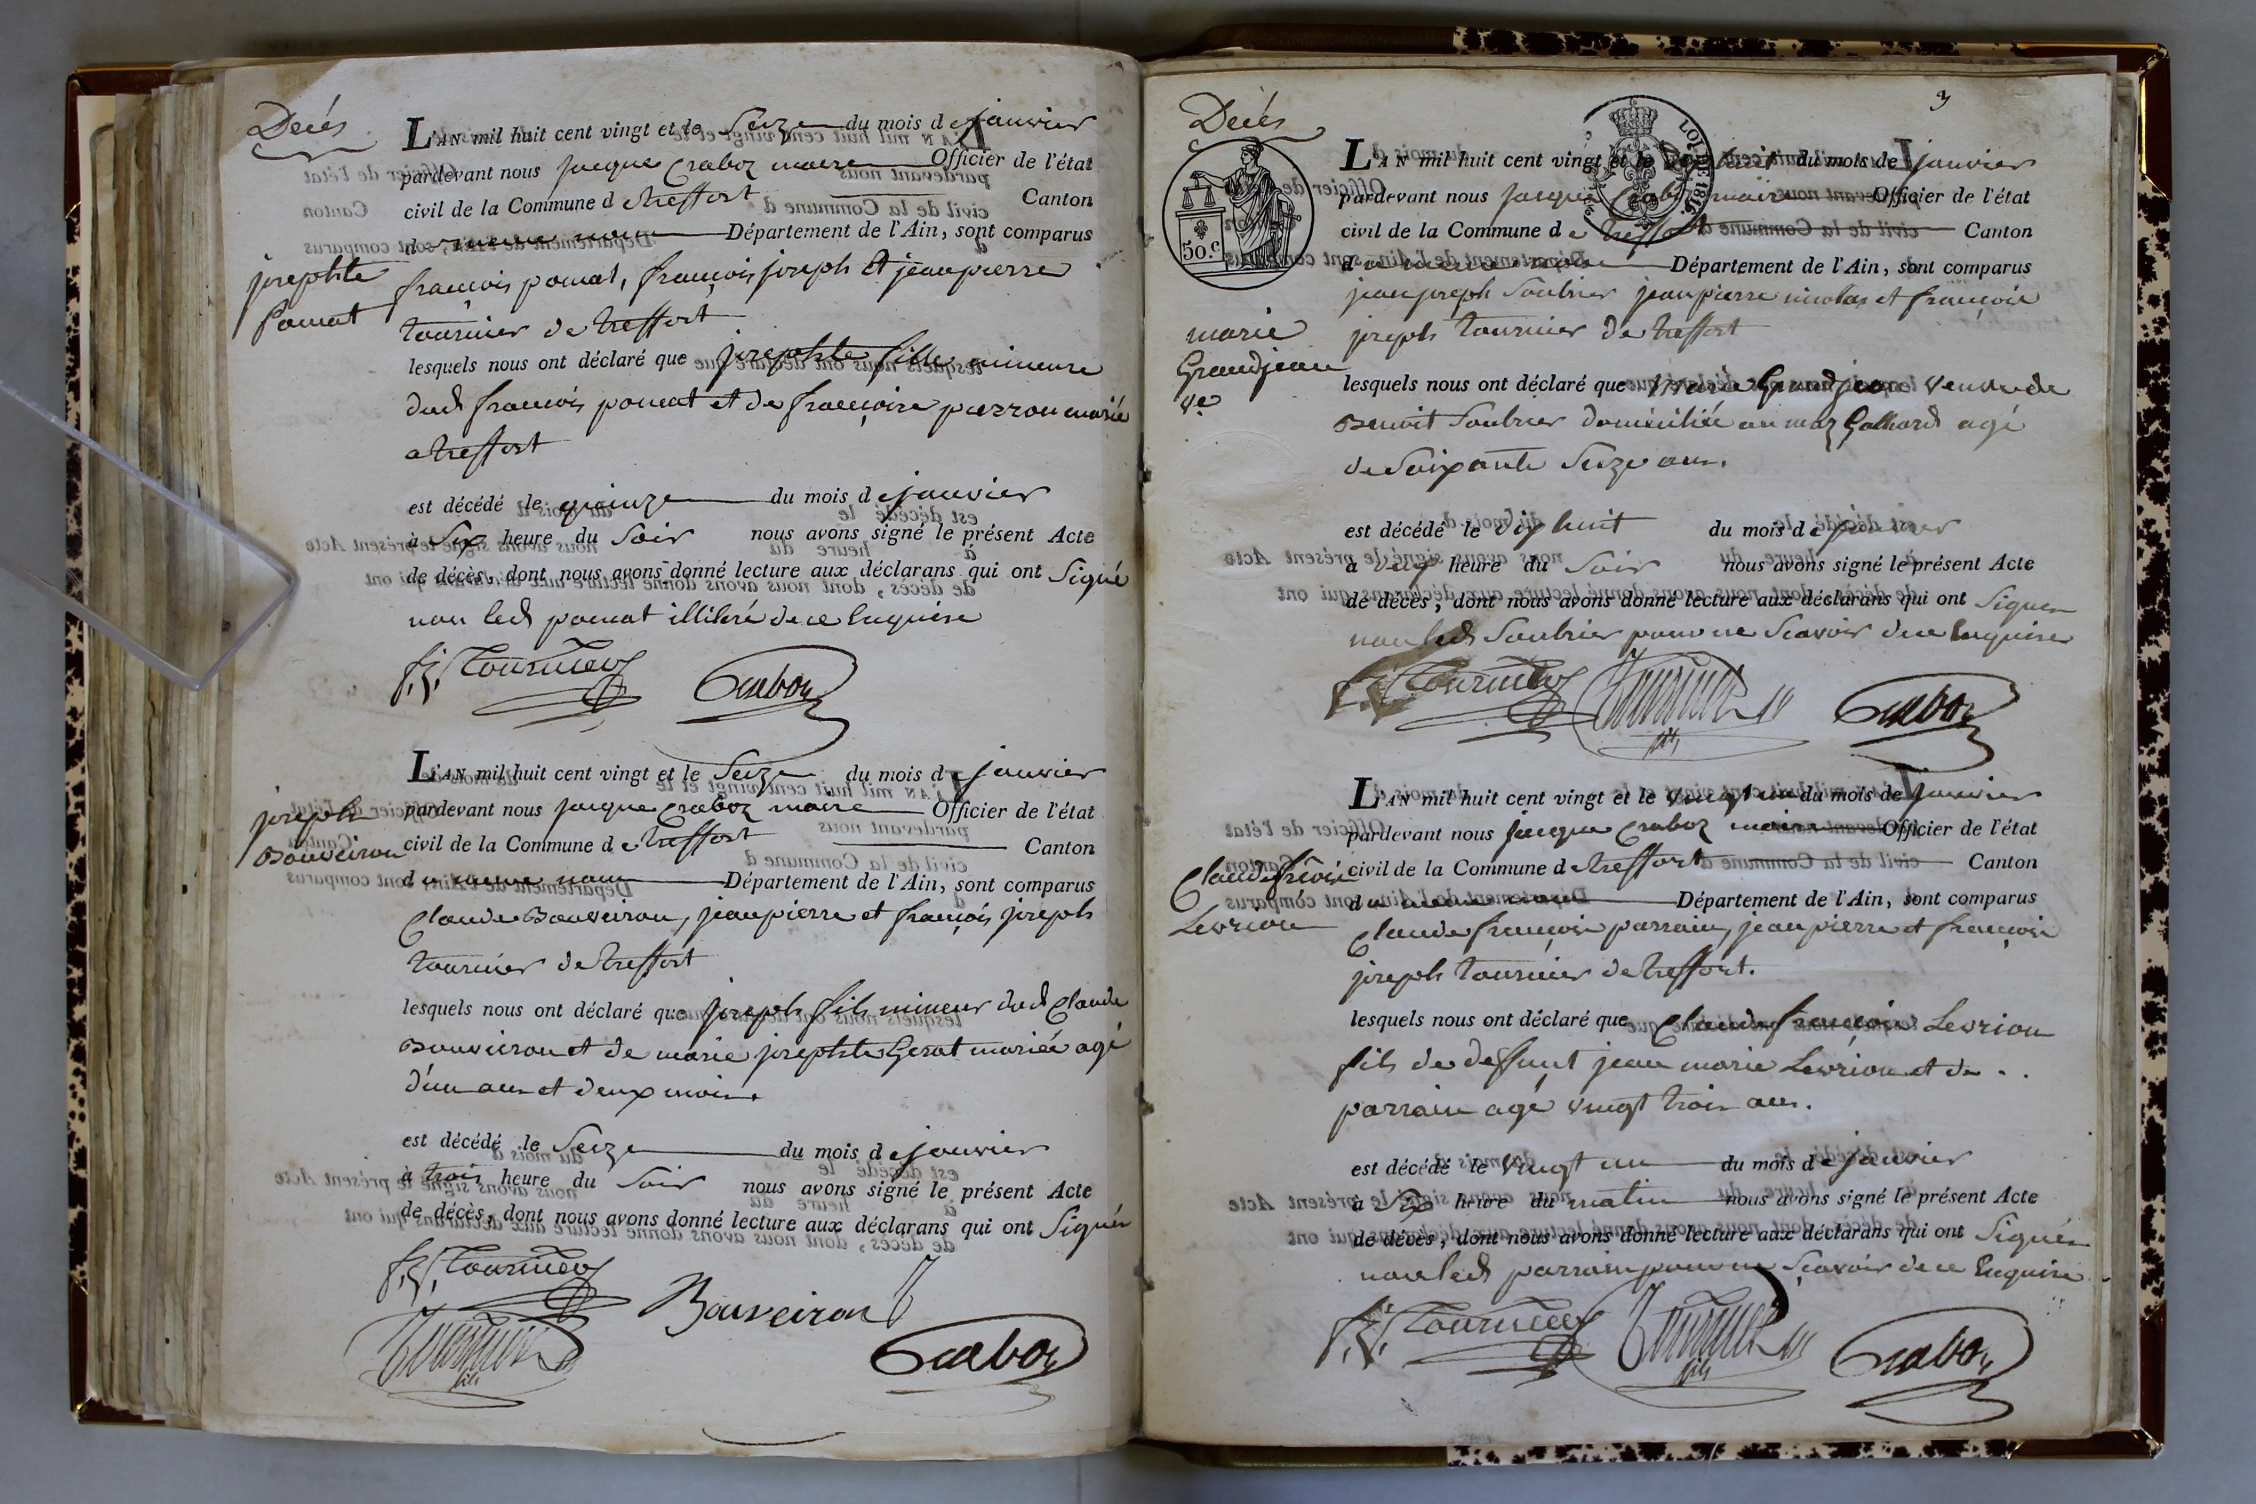 Decés
L'AN mil huit cent vingt et le Seize du mois de janvier
pardevant nous jacque Craboz maire Officier de l'état
civil de la Commune de treffort Canton
du meme nom Département de l'Ain, sont comparus
josephte
Pomat
francois pomat, francois joseph et jeanpierre
tournier de treffort
lesquels nous ont déclaré que josephte fille mineure
dud francois pomat et de francoise pierron mariés
a treffort
est décédé le quinze du mois de janvier
à Six heure du Soir nous avons signé le présent Acte
de décès, dont nous avons donné lecture aux déclarans qui ont Signé
non led pomat illitéré de ce Enquise
f. j. Tournier Craboz
L'AN mil huit cent vingt et le Seize du mois de janvier
pardevant nous jacque Craboz maire Officier de l'état
joseph
Bouveiron
civil de la Commune de treffort Canton
du meme nom Département de l'Ain, sont comparus
Claude Bouveiron, jeanpierre et françois joseph
tournier de treffort
lesquels nous ont déclaré que joseph fils mineur dud Claude
Bouveiron et de marie josephte mariés agé
d'un an et deux mois.
est décédé le Seize du mois de janvier
à trois heure du Soir nous avons signé le présent Acte
de décès, dont nous avons donné lecture aux déclarans qui ont Signés
f. j. Tournier
Bouveiron
Tournier fils
Craboz
3
Decés
LOI DE 1816.
50.c
L'AN mil huit cent vingt et le du mois de janvier
pardevant nous jacque Craboz maire Officier de l'état
civil de la Commune de treffort Canton
du meme nom Département de l'Ain, sont comparus
jean joseph Soubrier jeanpierre nicolas et françois
marie
Grandjean
ve
joseph tournier de treffort
lesquels nous ont déclaré que Marie Grandjean veuve de
Benoit Soubrier domiciliée au maz Galhard agé
de Soixante Seize ans.
est décédé le dix huit du mois de janvier
à heure du Soir nous avons signé le présent Acte
de décès, dont nous avons donné lecture aux déclarans qui ont Signés
non led Soubrier pour ne Scavoir de ce Enquise
f. j. Tournier Tournier fils Craboz
L'AN mil huit cent vingt et le vingt un du mois de janvier
pardevant nous jacque Craboz maire Officier de l'état
Claude frcois
Levrion
civil de la Commune de treffort Canton
du meme nom Département de l'Ain, sont comparus
Claude françois parrain, jean pierre et françois
joseph tournier de treffort.
lesquels nous ont déclaré que Claude françois Levrion
fils de deffunt jean marie Levrion et de . .
parrain agé vingt trois ans.
est décédé le vingt un du mois de janvier
à Six heure du matin nous avons signé le présent Acte
de décès, dont nous avons donné lecture aux déclarans qui ont Signés
non led parrain pour ne Sçavoir de ce Enquise
f. j. Tournier Tournier fils Craboz